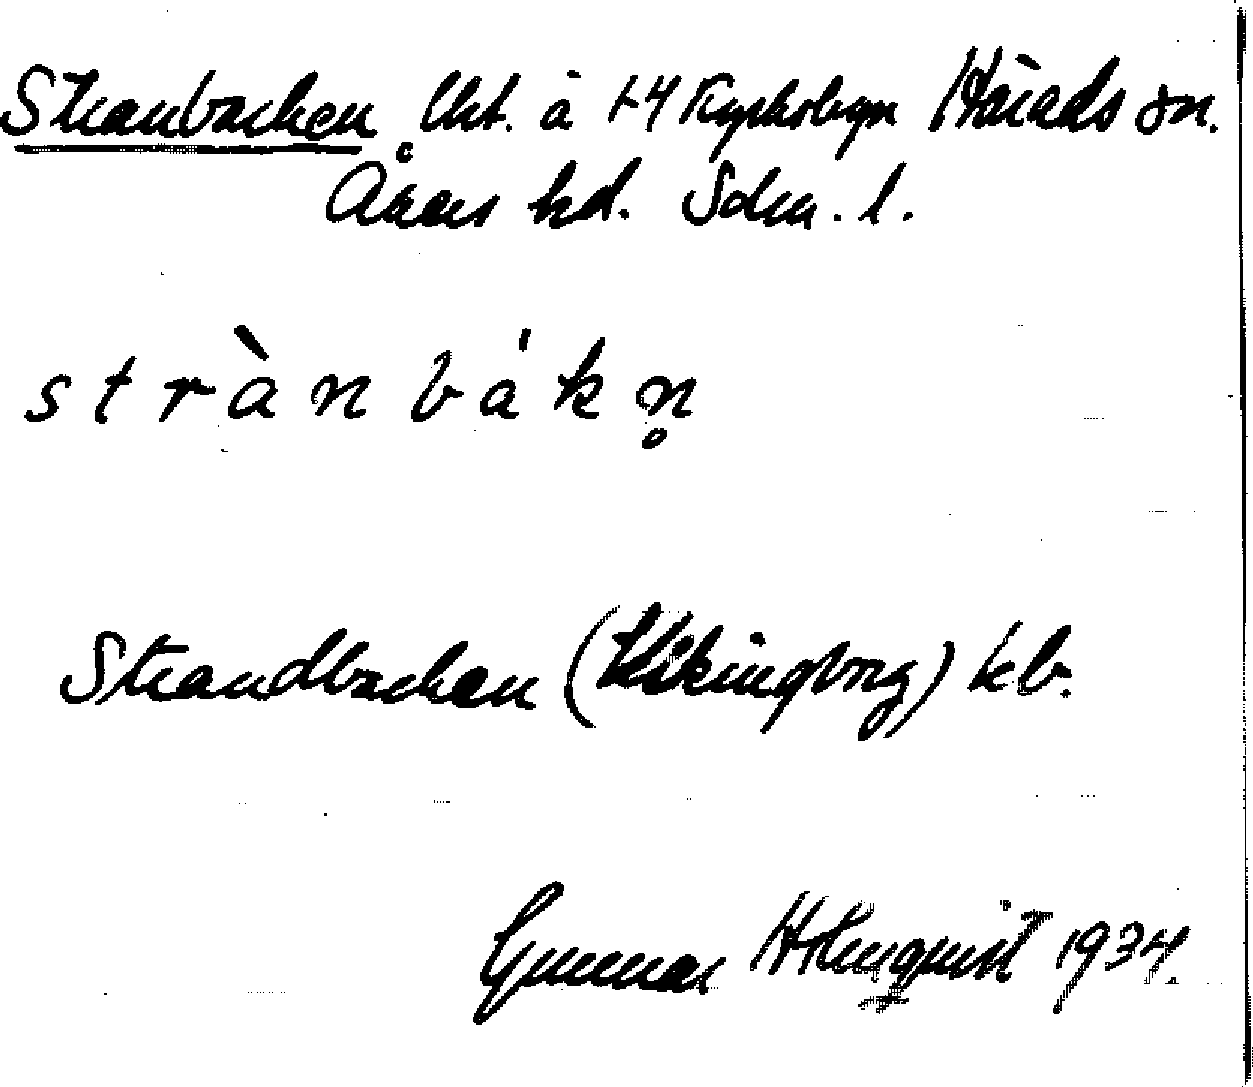 Stranbacken Uht. å 1-4 Kyrkobyn Härads sn.
Åkers hd. Sdm. l.
strànbákn̥
Strandbacken (Vikingborg) kb.
Gunnar Holmquist 1934.